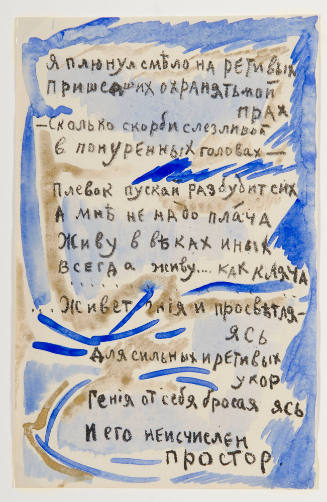 Я плюнул смѣло на ретивых
Пришедших охранять мой
прах
— Сколько скорби слезливой
в понуренных головах —
Плевок пускай разбудит сих
А мнѣ не надо плача
Живу в вѣках иных
Всегда живу.... как кляча
......
... Живет генія и просвѣтля-
ясь
Для сильных и ретивых
укор
Генія от себя бросая ясь
И его неисчислен
простор.